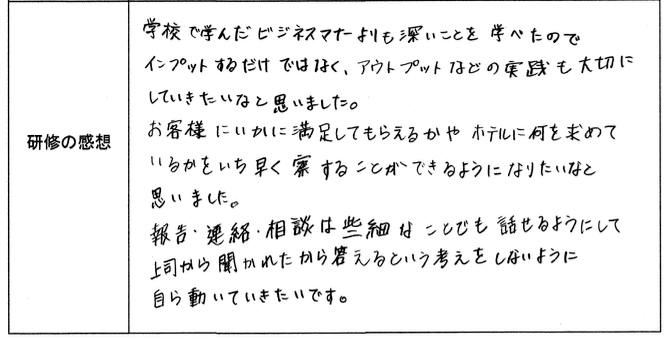 研修の感想
学校で学んだビジネスマナーよりも深いことを学べたので
インプットするだけではなく、アウトプットなどの実践も大切に
していきたいなと思いました。
お客様にいかに満足してもらえるかや ホテルに何を求めて
いるかをいち早く察することができるようになりたいなと
思いました。
報告・連絡・相談は些細なことでも話せるようにして
上司から聞かれたから答えるという考えをしないように
自ら動いていきたいです。